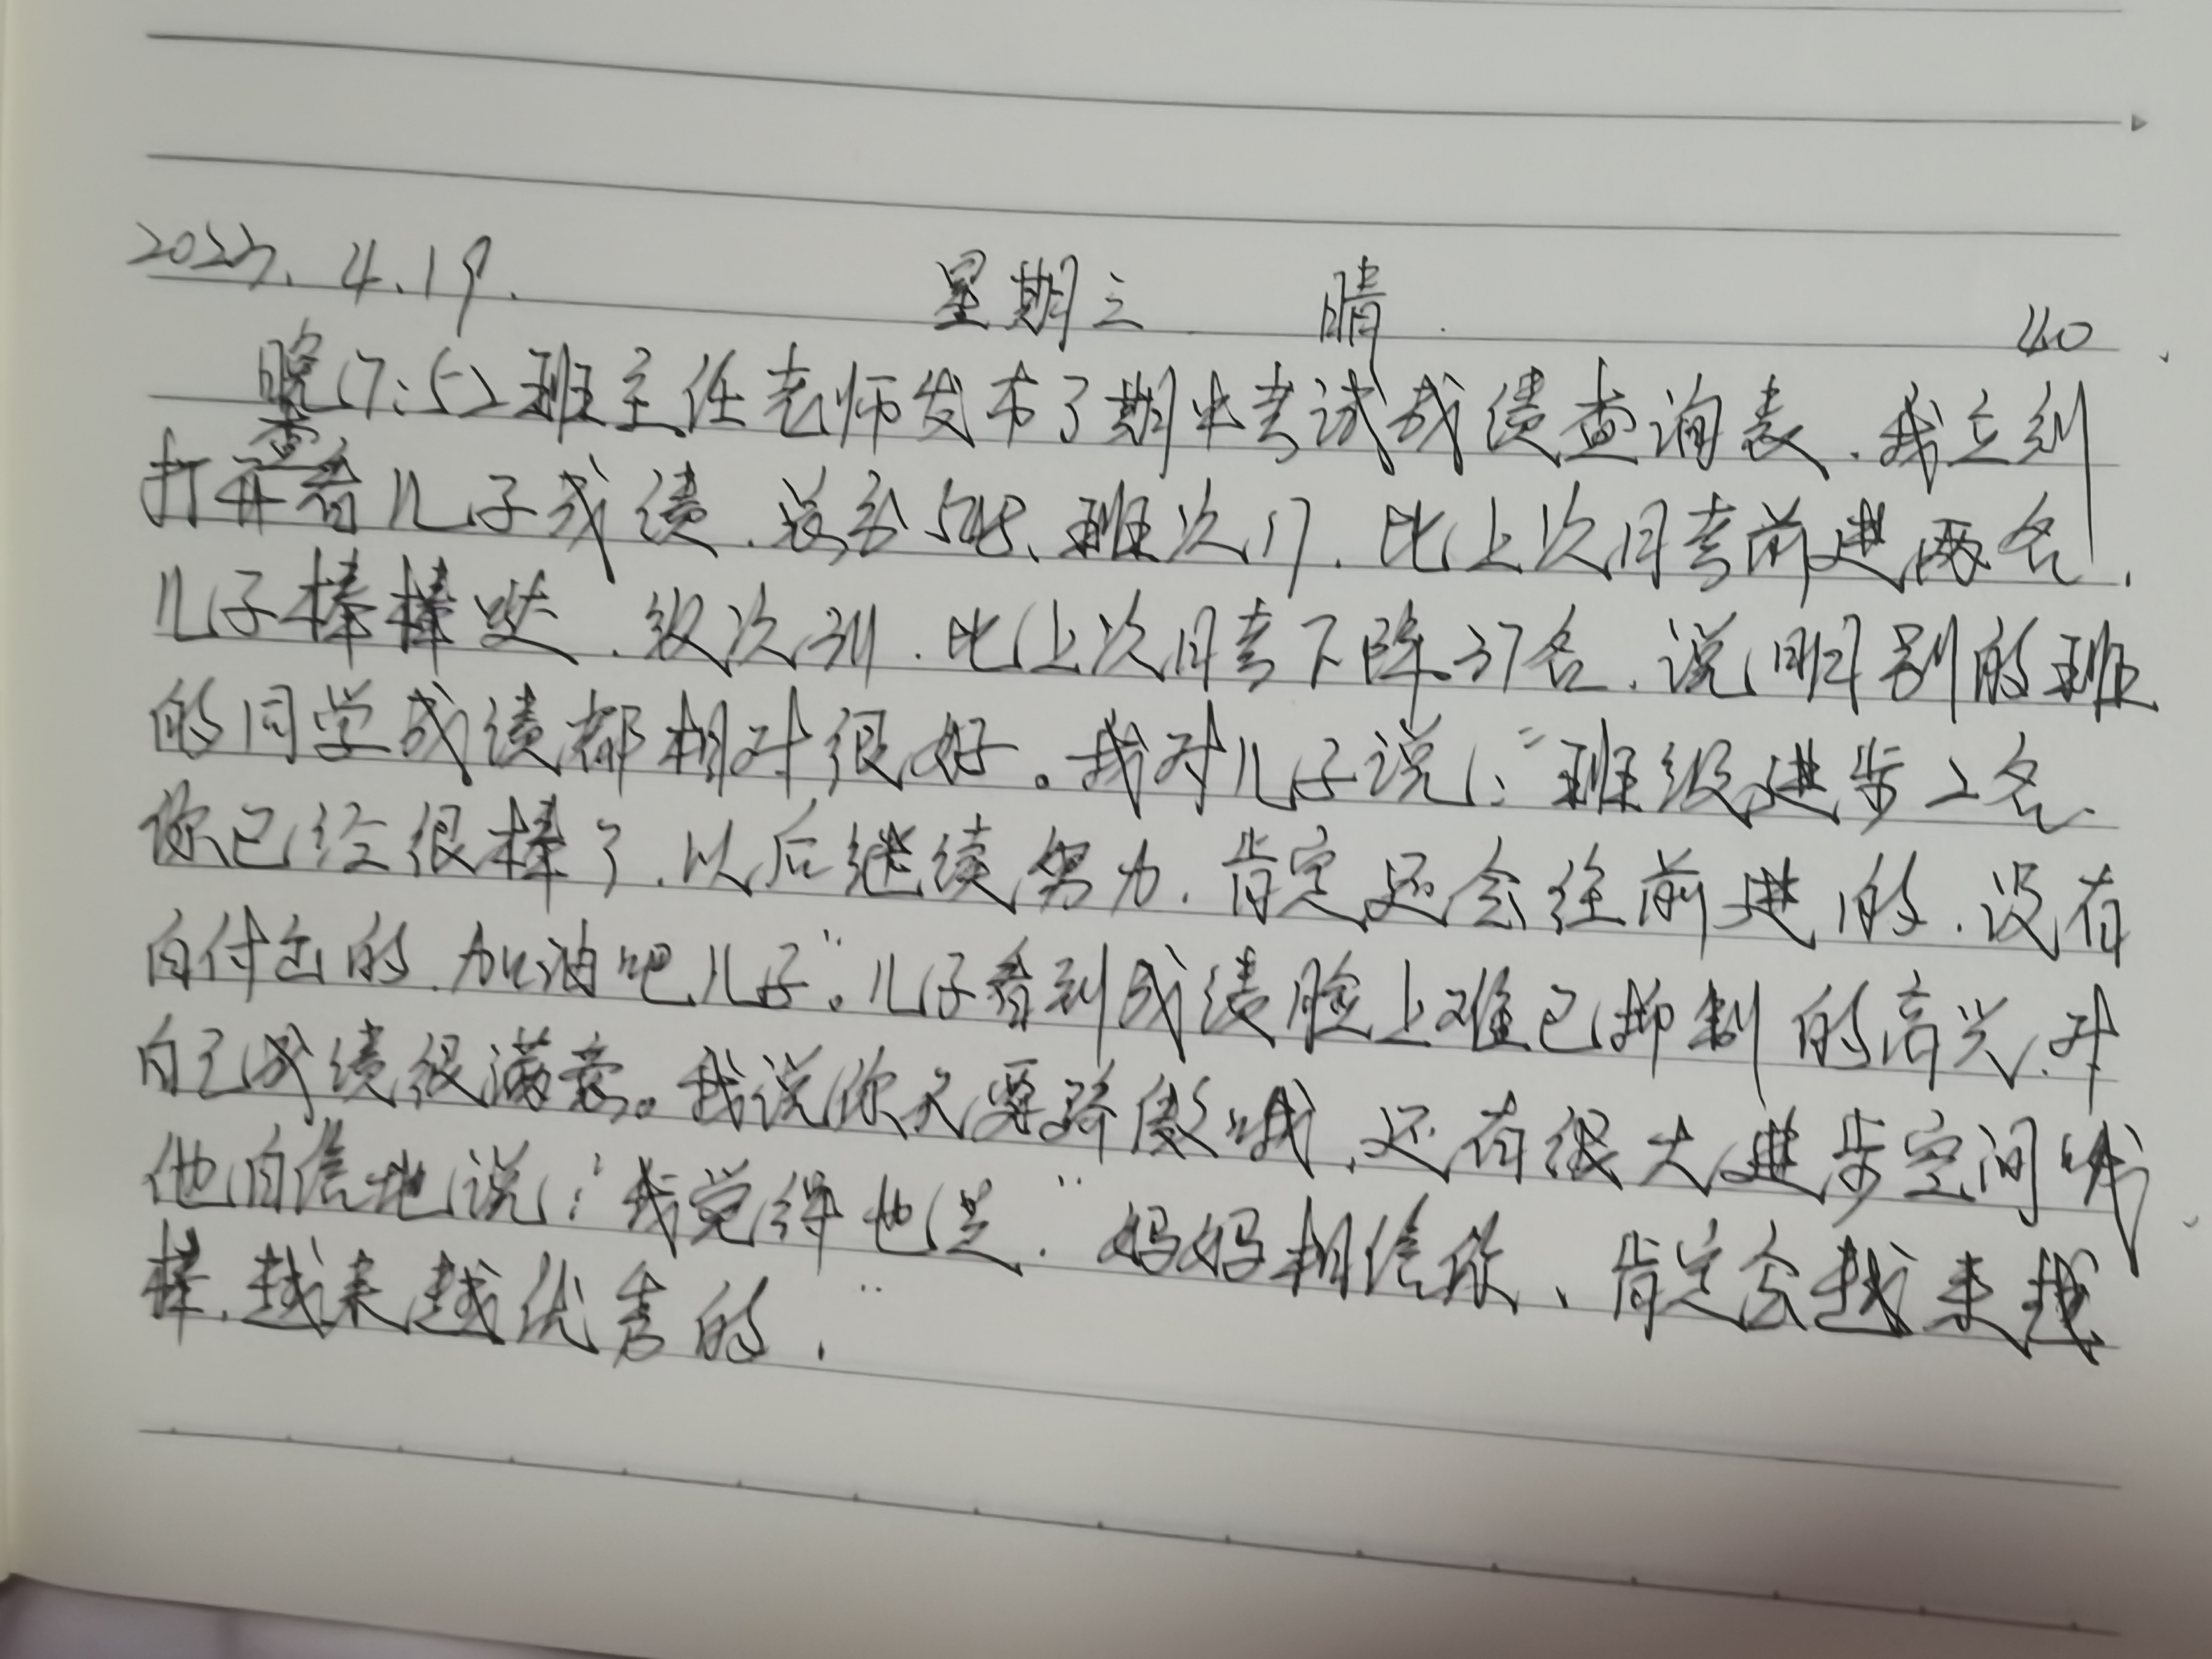 2023.4.19. 星期三 晴. 40
晚17:52班主任老师发布了期中考试成绩查询表.我立刻
打开查看儿子成绩.总分548、班次17.比上次月考前进两名.
儿子棒棒哒.级次311.比上次月考下降37名.说明别的班
的同学成绩都相对很好。我对儿子说:"班级进步2名.
你已经很棒了.以后继续努力.肯定还会往前进的.没有
白付出的.加油吧儿子"。儿子看到成绩脸上难已抑制的高兴.对
自己成绩很满意。我说你不要骄傲哦.还有很大进步空间哦
他自信地说:"我觉得也是."妈妈相信你、肯定会越来越
棒.越来越优秀的.